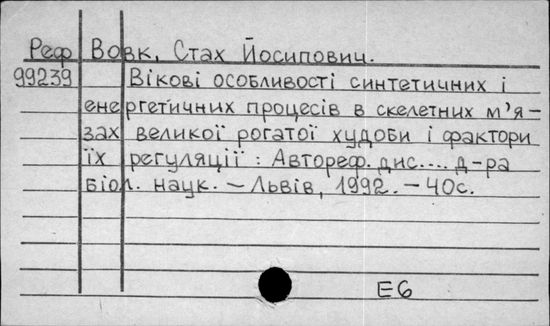 Реф Вовк, Стах Йосипович.
99239 Вікові особливості синтетичних і
енергетичних процесів в скелетних м'я-
зах великої рогатої худоби і фактори
їх регуляції : Автореф. дис.... д-ра
біол. наук. – Львів, 1992. – 40с.
Е6